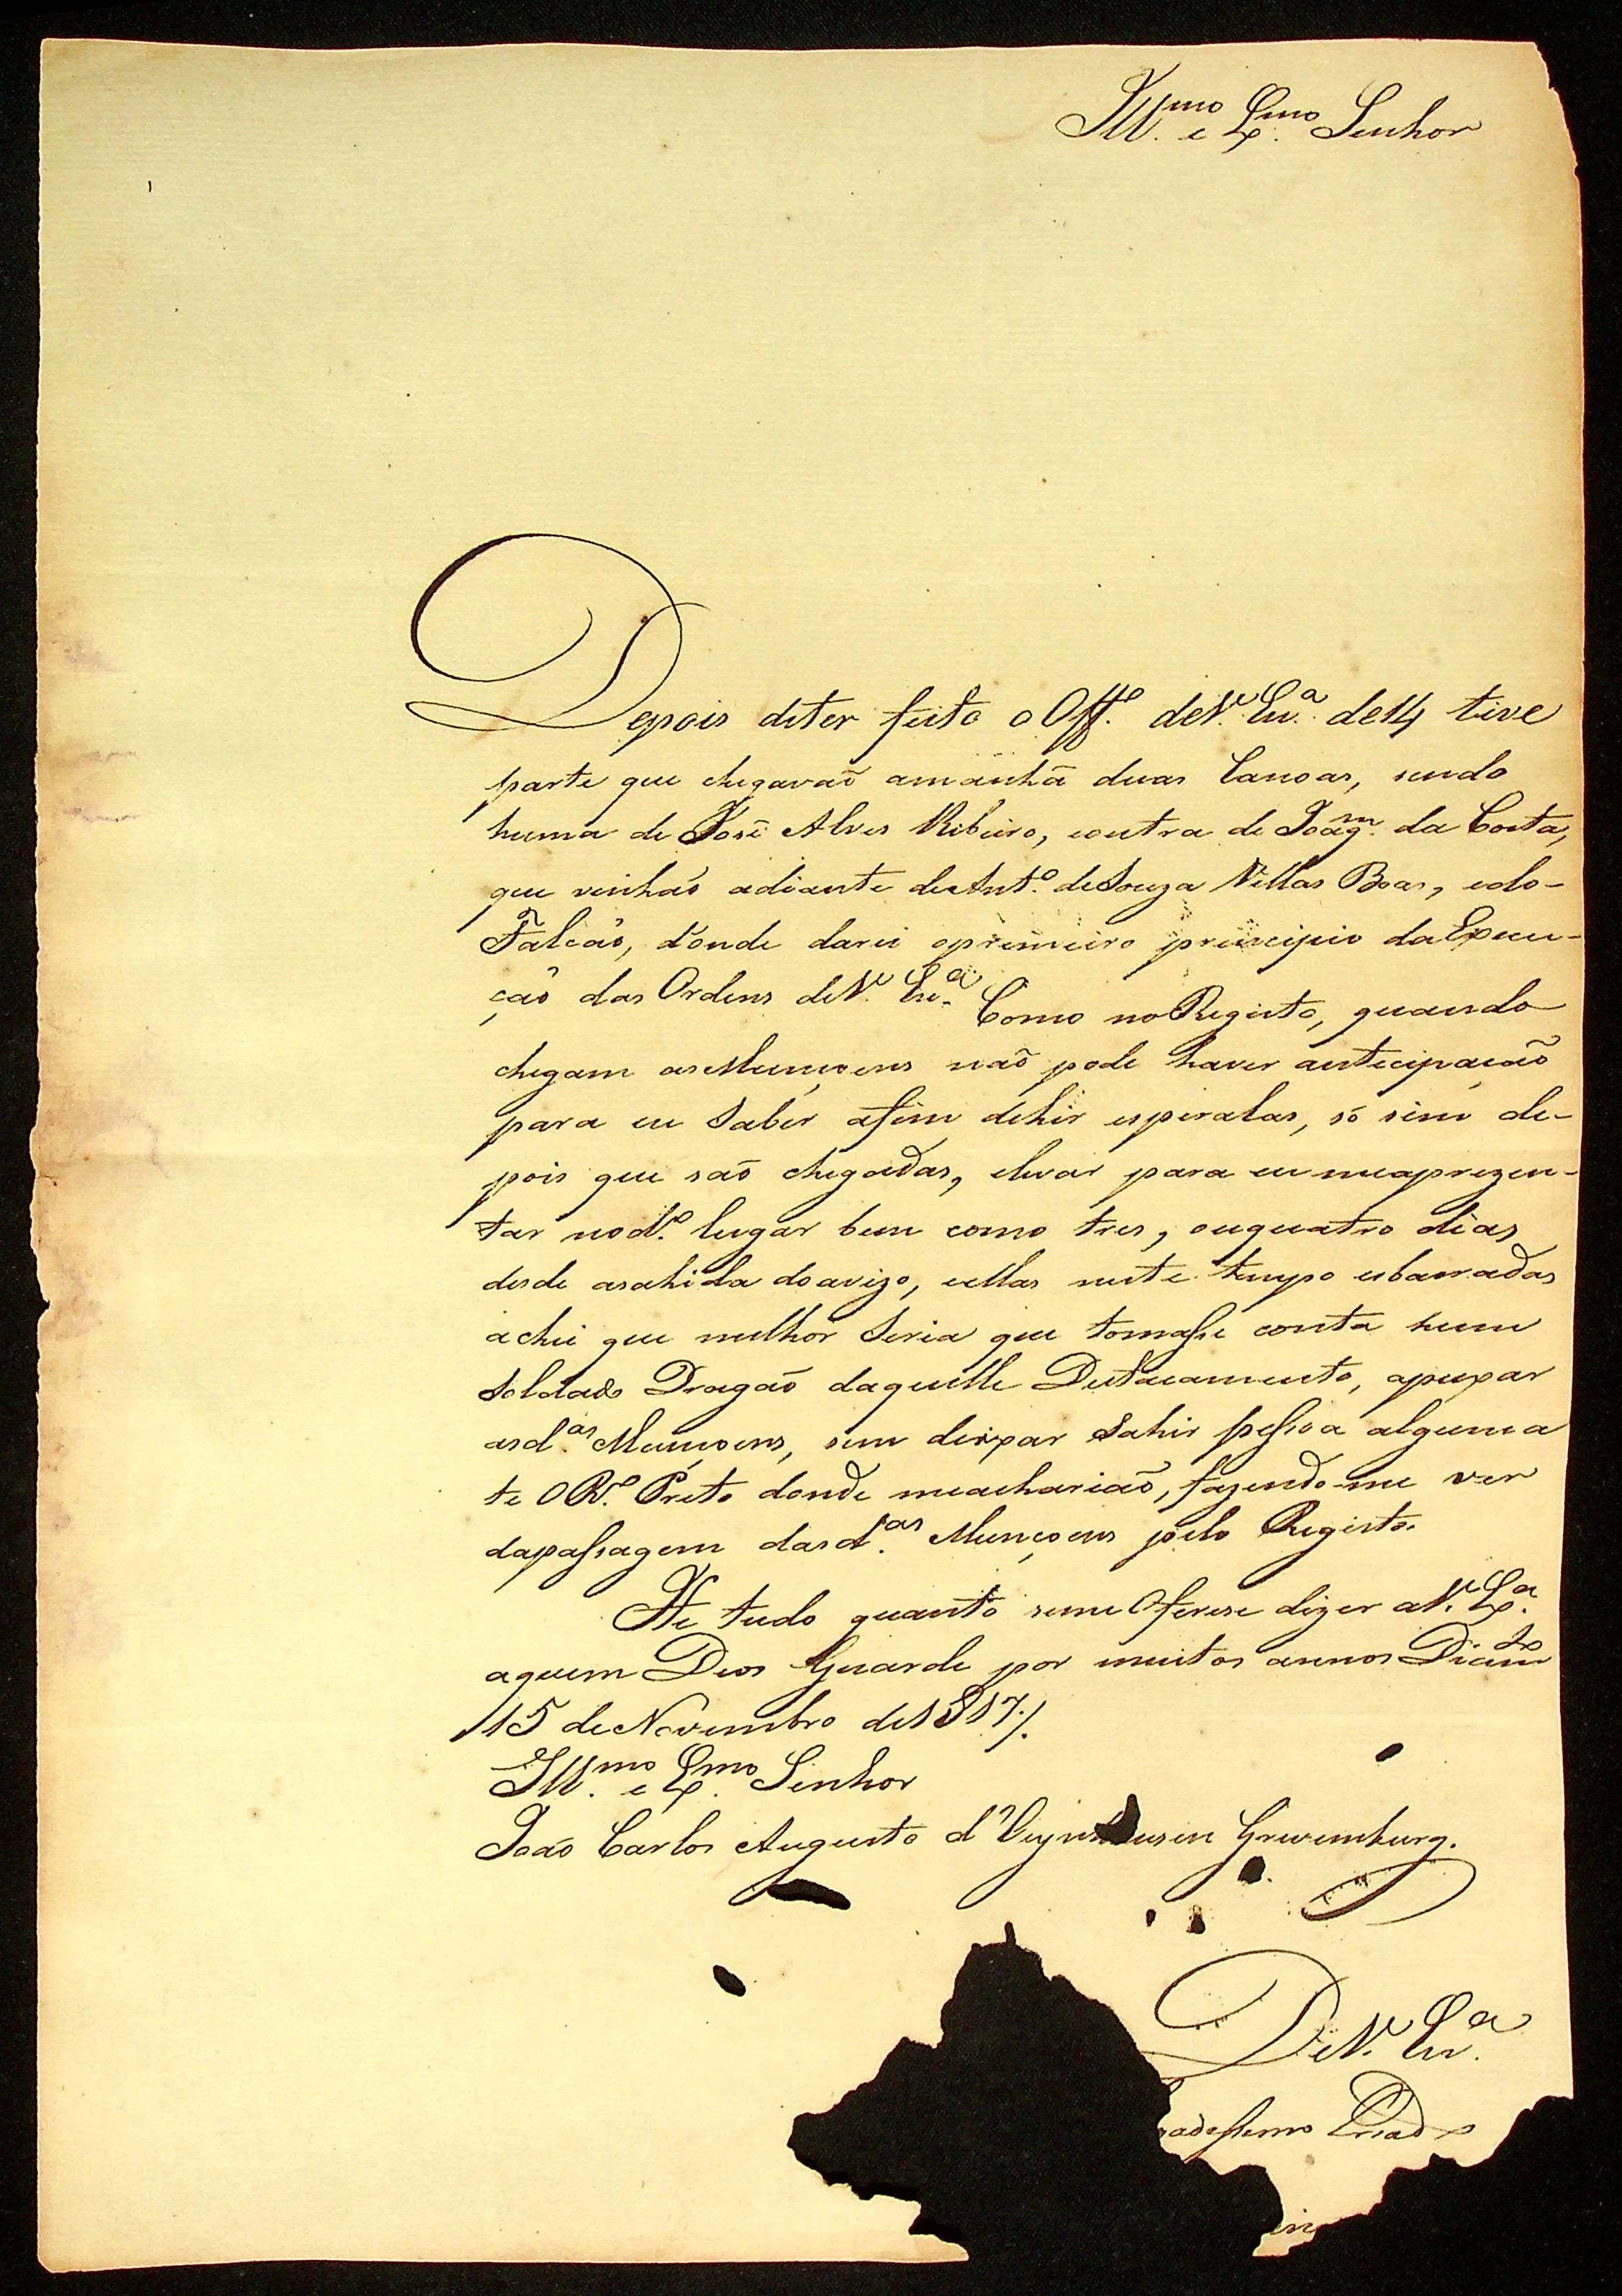 Ill.mo e Ex.mo Senhor
Depois deter feito o Off.o deV. Ex.a de 14 tive
parte que chegavaõ amanhã duas Canoas, sendo
huma de José Alves Ribeiro, eoutra de Joaq.m da Costa,
que vinhaõ adiante deAnt.o deSouza Villas Boas, edo-
Falcaõ, d'onde darei oprimeiro principio da Execu-
çaõ das Ordens deV. Ex.a Como noRegisto, quando
chegam as Munçoens naõ pode haver antecipaçaõ
para eu Saber afim dehir esperalas, só sim de-
pois que saõ chegadas, elevar para eu meaprezen-
tar nod.o lugar bem como tres, ouquatro dias
desde asahida doavizo, eellas neste tempo esbarradas
achei que melhor Seria que tomasse conta hum
Soldado Dragaõ daquelle Destacamento, apuxar
asd.as Munçoens, sem deixar Sahir pessoa alguma a
te O R.o Preto donde meachariaõ, fazendo-me ver
dapassagem dasd.as Munçoens pelo Registo.
He tudo quanto seme Oferese dizer aV. Ex.a
aquem Deos Guarde por muitos annos
15 deNovembro de1817/.
Ill.mo e Ex.mo Senhor
Joaõ Carlos Augusto d'Oeynhausen Grevemburg.
DeV. Ex.a
Criado